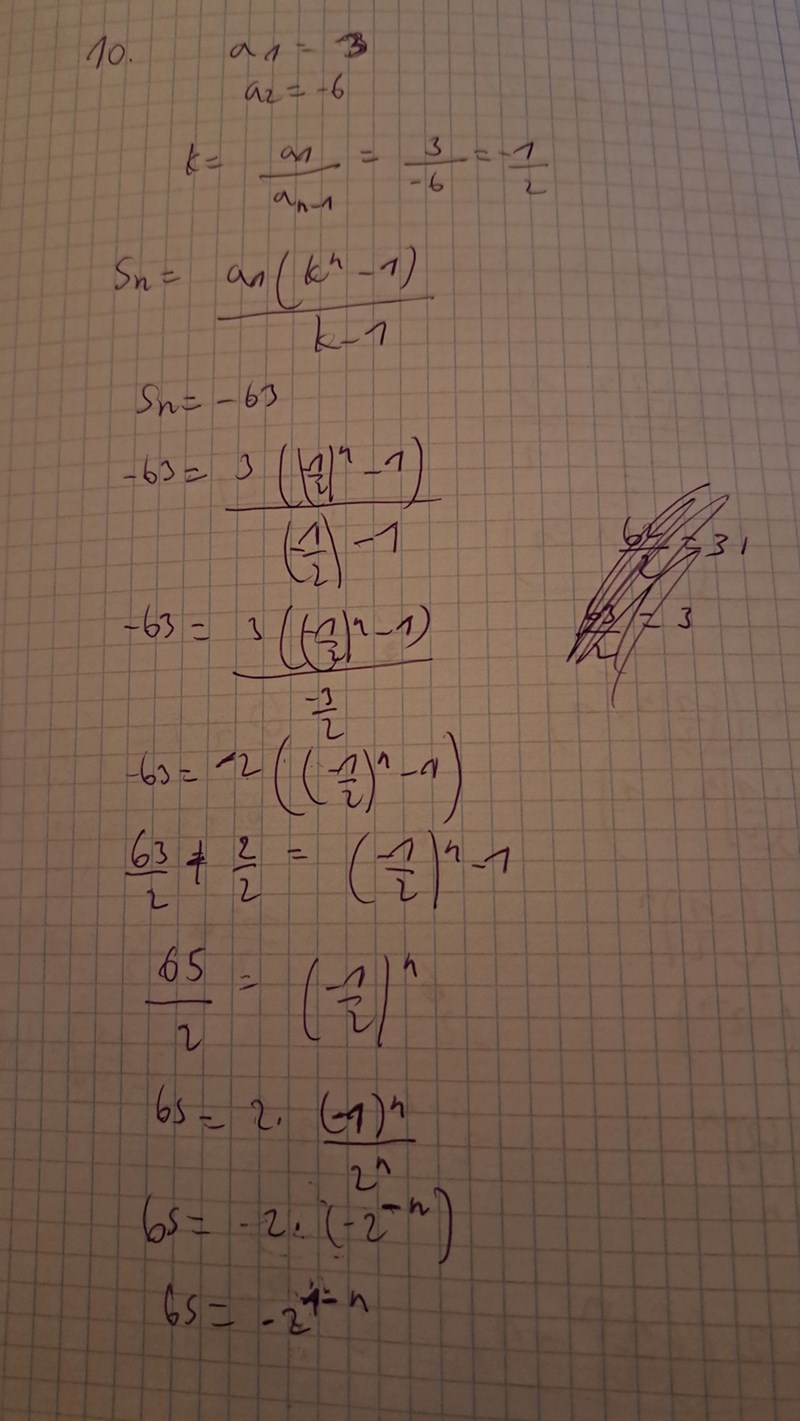 10. a1 = 3
a2 = -6
k = a1/an-1 = 3/-6 = -1/2
Sn = a1(k^n - 1)/k-1
Sn = -63
-63 = 3((-1/2)^n - 1)/(-1/2) - 1
-63 = 3((-1/2)^n - 1)/-3/2
-63 = -2((-1/2)^n - 1)
63/2 + 2/2 = (-1/2)^n - 1
65/2 = (-1/2)^n
65 = 2 · (-1)^n/2^n
65 = -2 · (-2^-n)
65 = -2^1-n